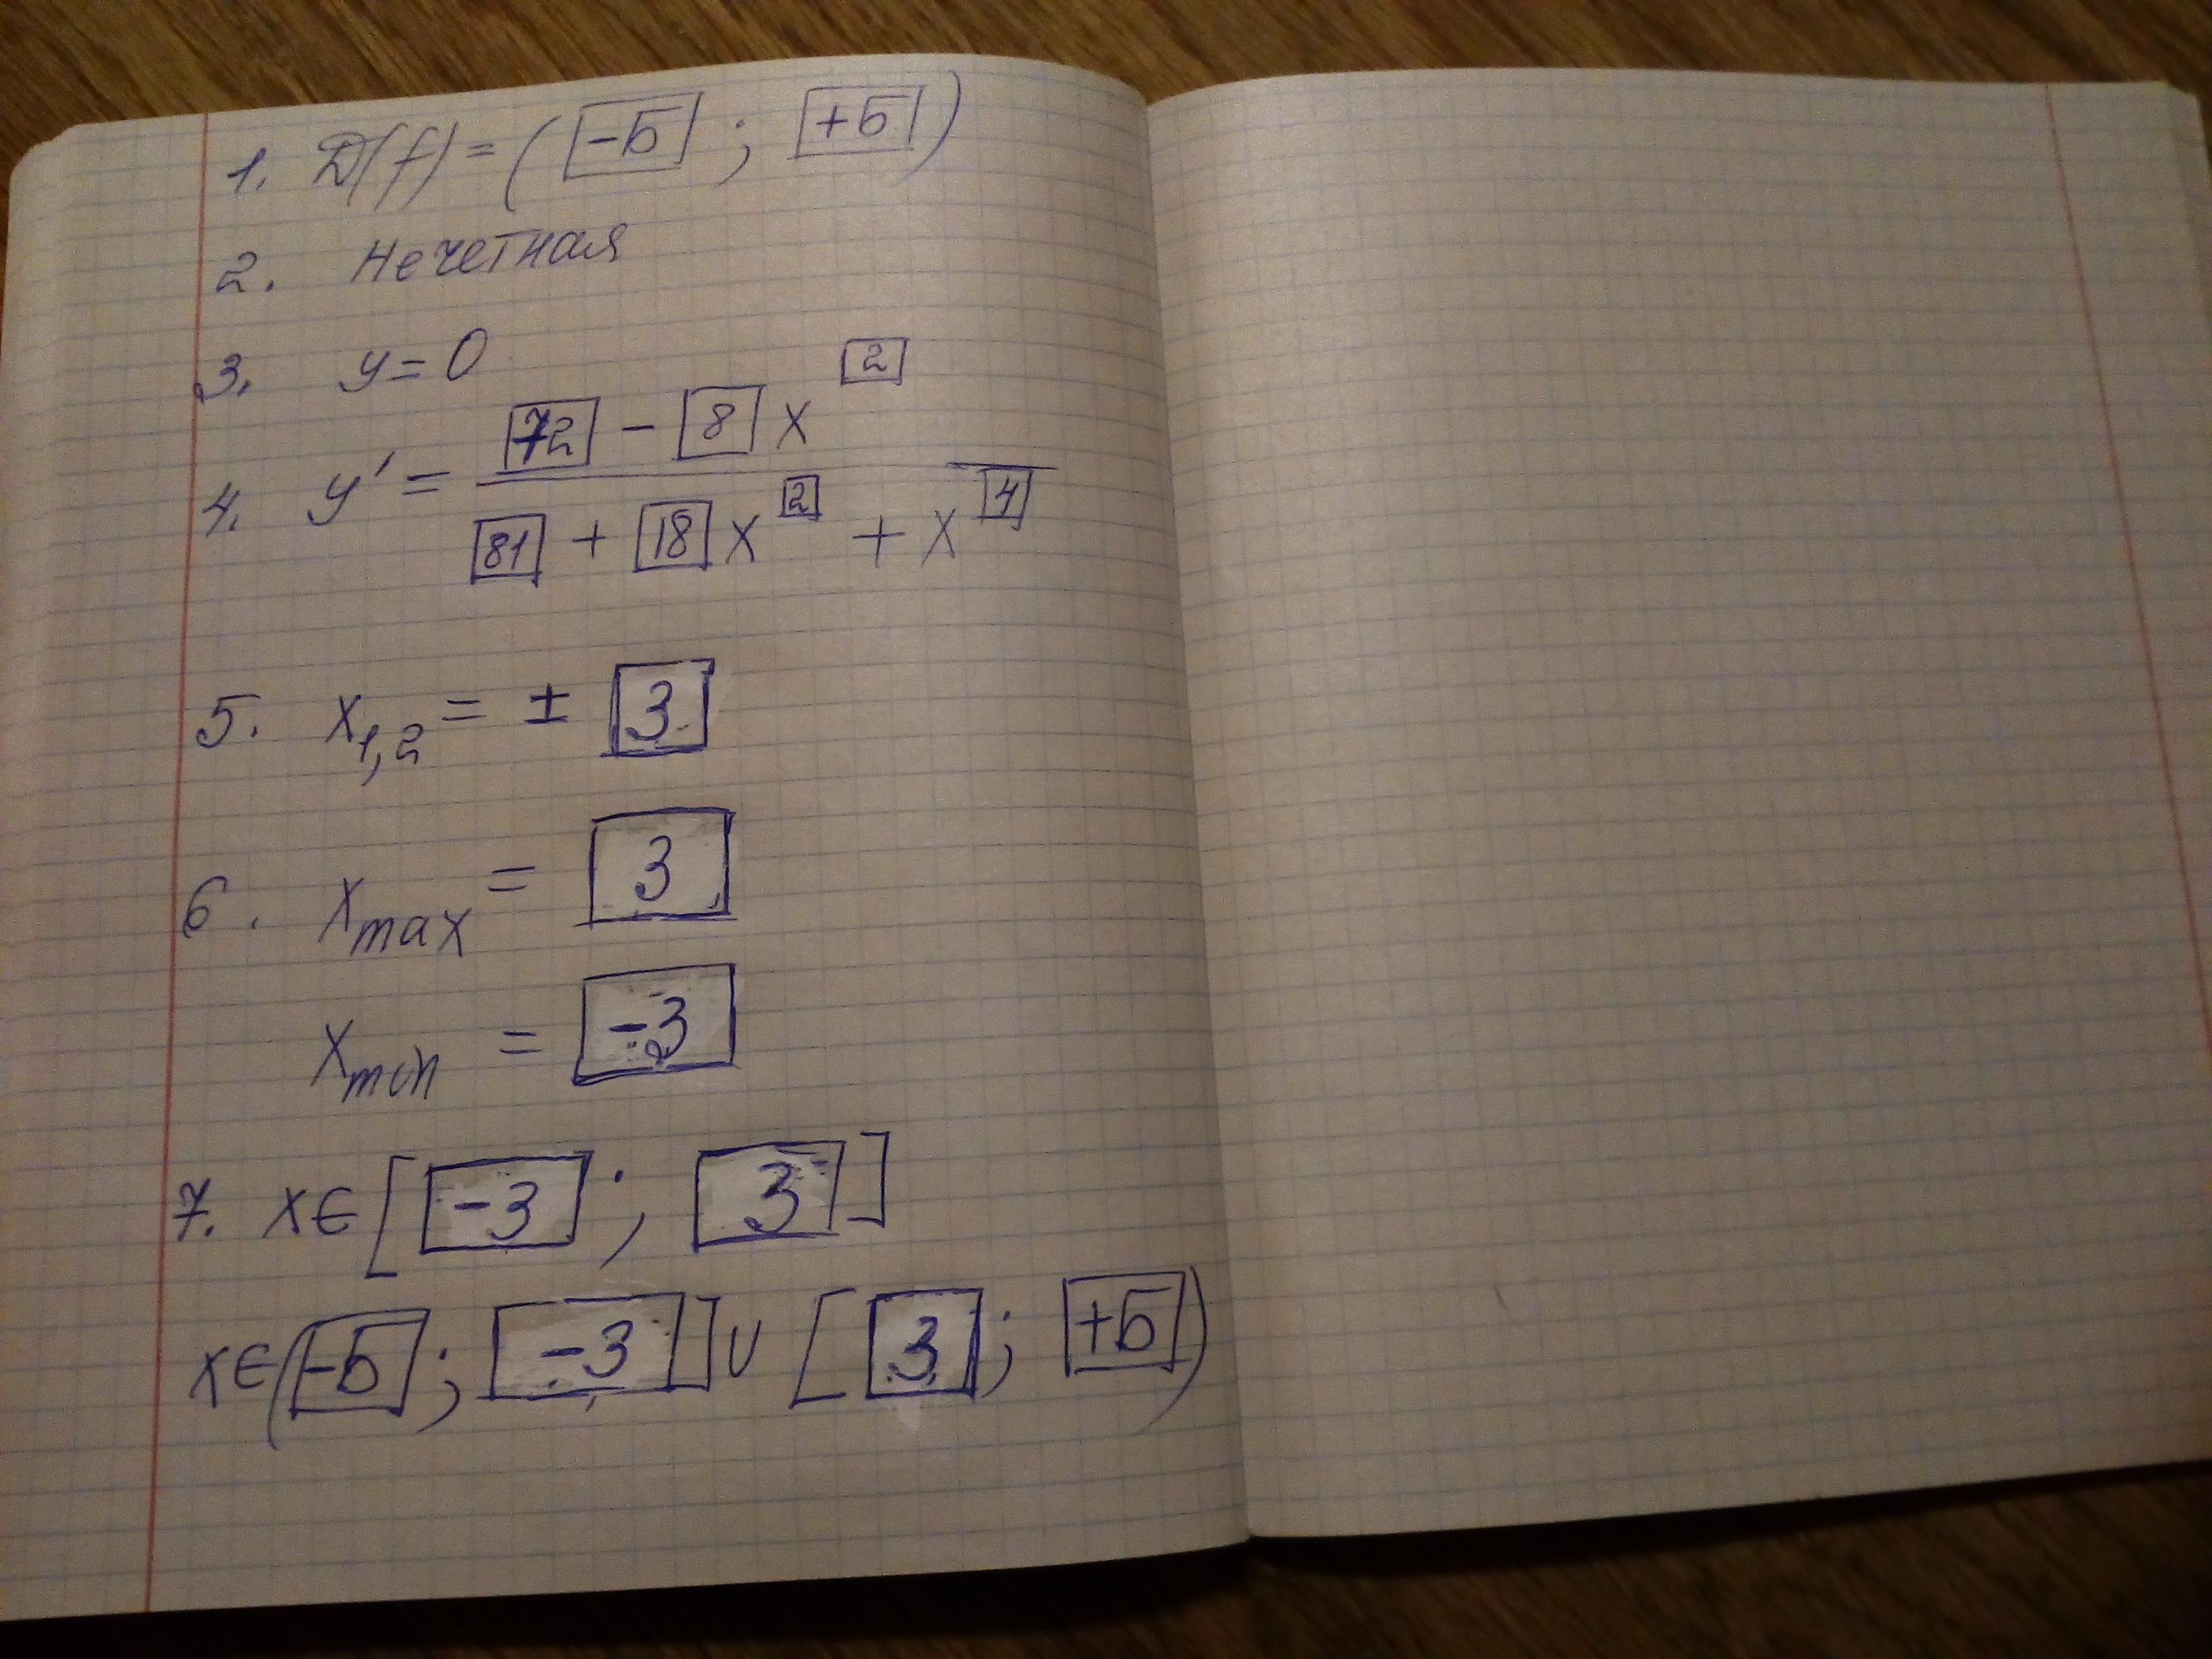 1. D(f) = ( -Б ; +Б )
2. Нечетная
3. y = 0
4. y' = (72 - 8 x^2) / (81 + 18 x^2 + x^4)
5. x_1,2 = ± 3
6. x_max = 3
x_min = -3
7. x ∈ [ -3 ; 3 ]
x ∈ ( -Б ; -3 ] ∪ [ 3 ; +Б )